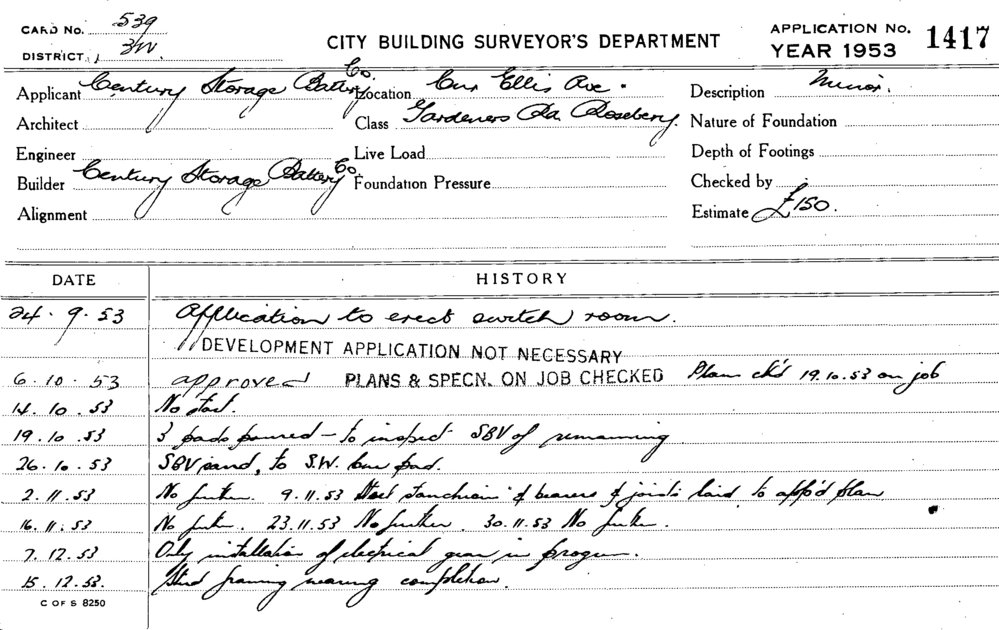 CARD No. 539
DISTRICT 3/W.
CITY BUILDING SURVEYOR'S DEPARTMENT
APPLICATION No. 1417
YEAR 1953
Applicant Century Storage Battery Co. Location Cnr Ellis Ave. Description Minor.
Architect Class Gardeners Rd. Rosebery. Nature of Foundation
Engineer Live Load Depth of Footings
Builder Century Storage Battery Co. Foundation Pressure Checked by
Alignment Estimate £150.
DATE HISTORY
24.9.53 Application to erect switch room.
DEVELOPMENT APPLICATION NOT NECESSARY
6.10.53 approved PLANS & SPECN. ON JOB CHECKED Plan ck'd 19.10.53 on job
14.10.53 No start.
19.10.53 3 pads poured – to inspect SBV of remaining
26.10.53 SBV sand, to S.W. pad.
2.11.53 No further. 9.11.53 Steel stanchions & bearers & joists laid to app'd plan
16.11.53 No further. 23.11.53 No further. 30.11.53 No further.
7.12.53 Only installation of electrical gear in progress.
15.12.53. Stud framing nearing completion.
C OF S 8250